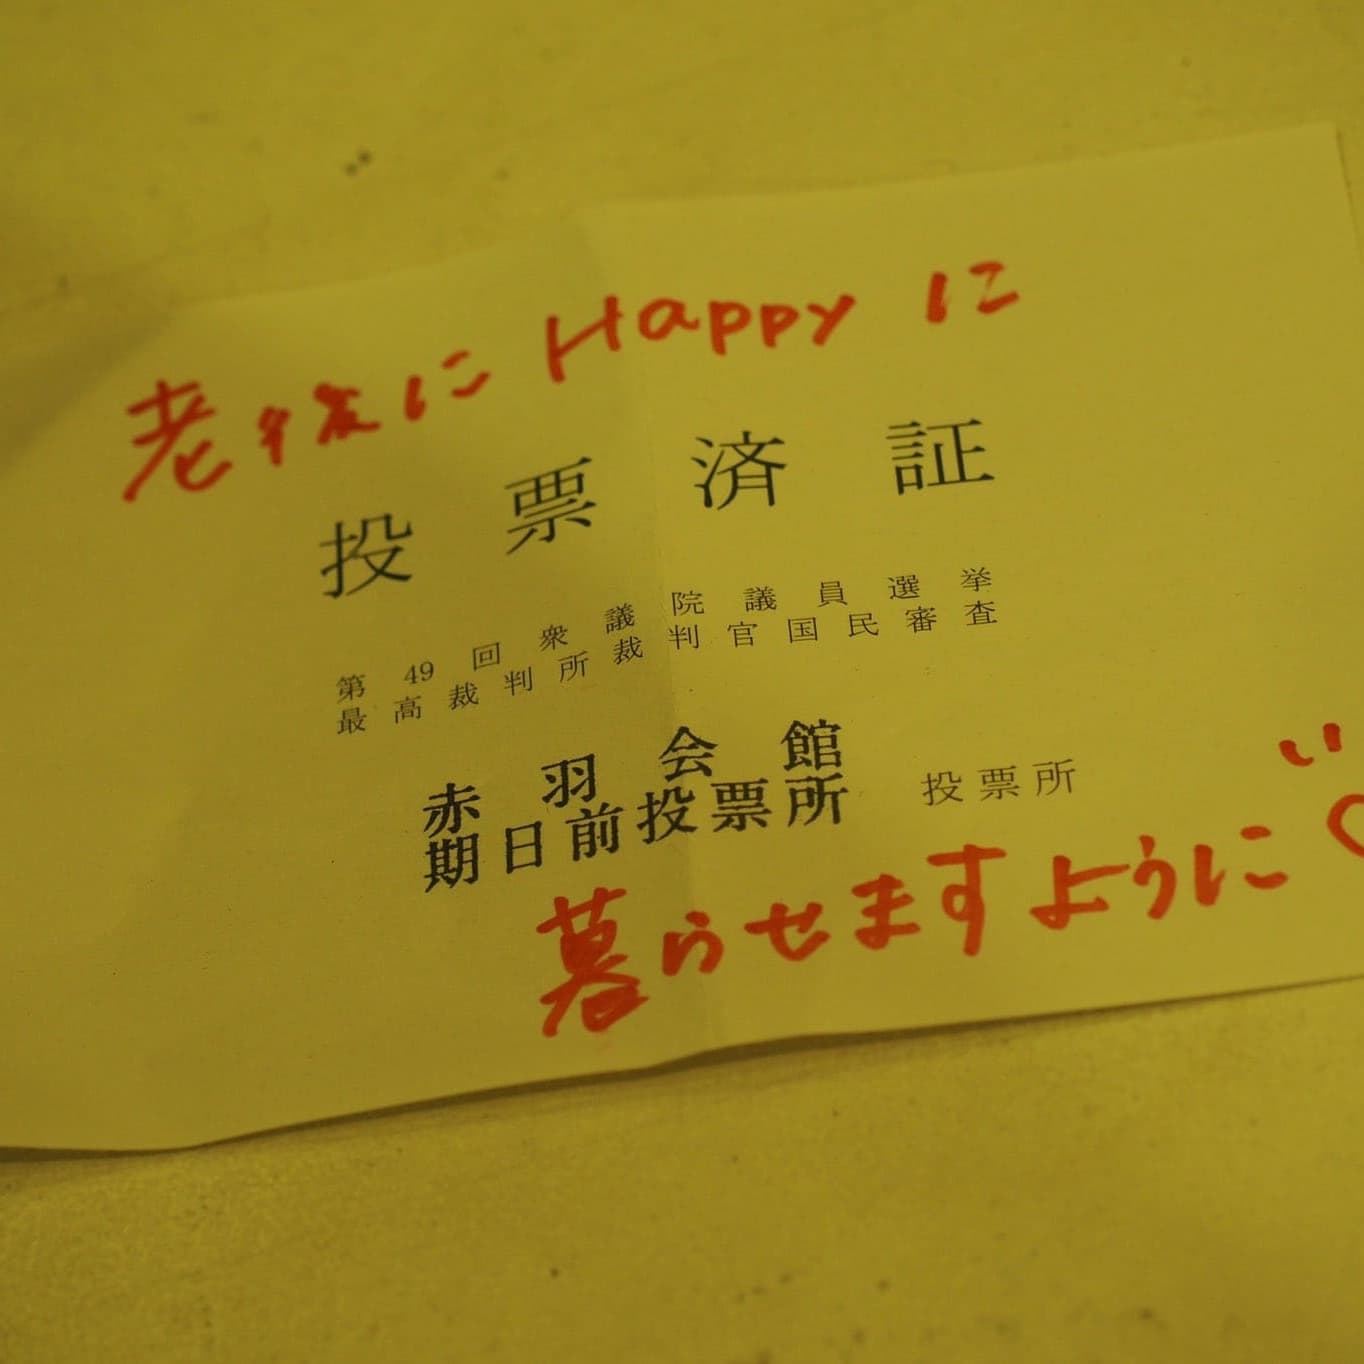 老後にHappyに
投票済証
第49回衆議院議員選挙
最高裁判所裁判官国民審査
赤羽会館
期日前投票所 投票所
暮らせますように